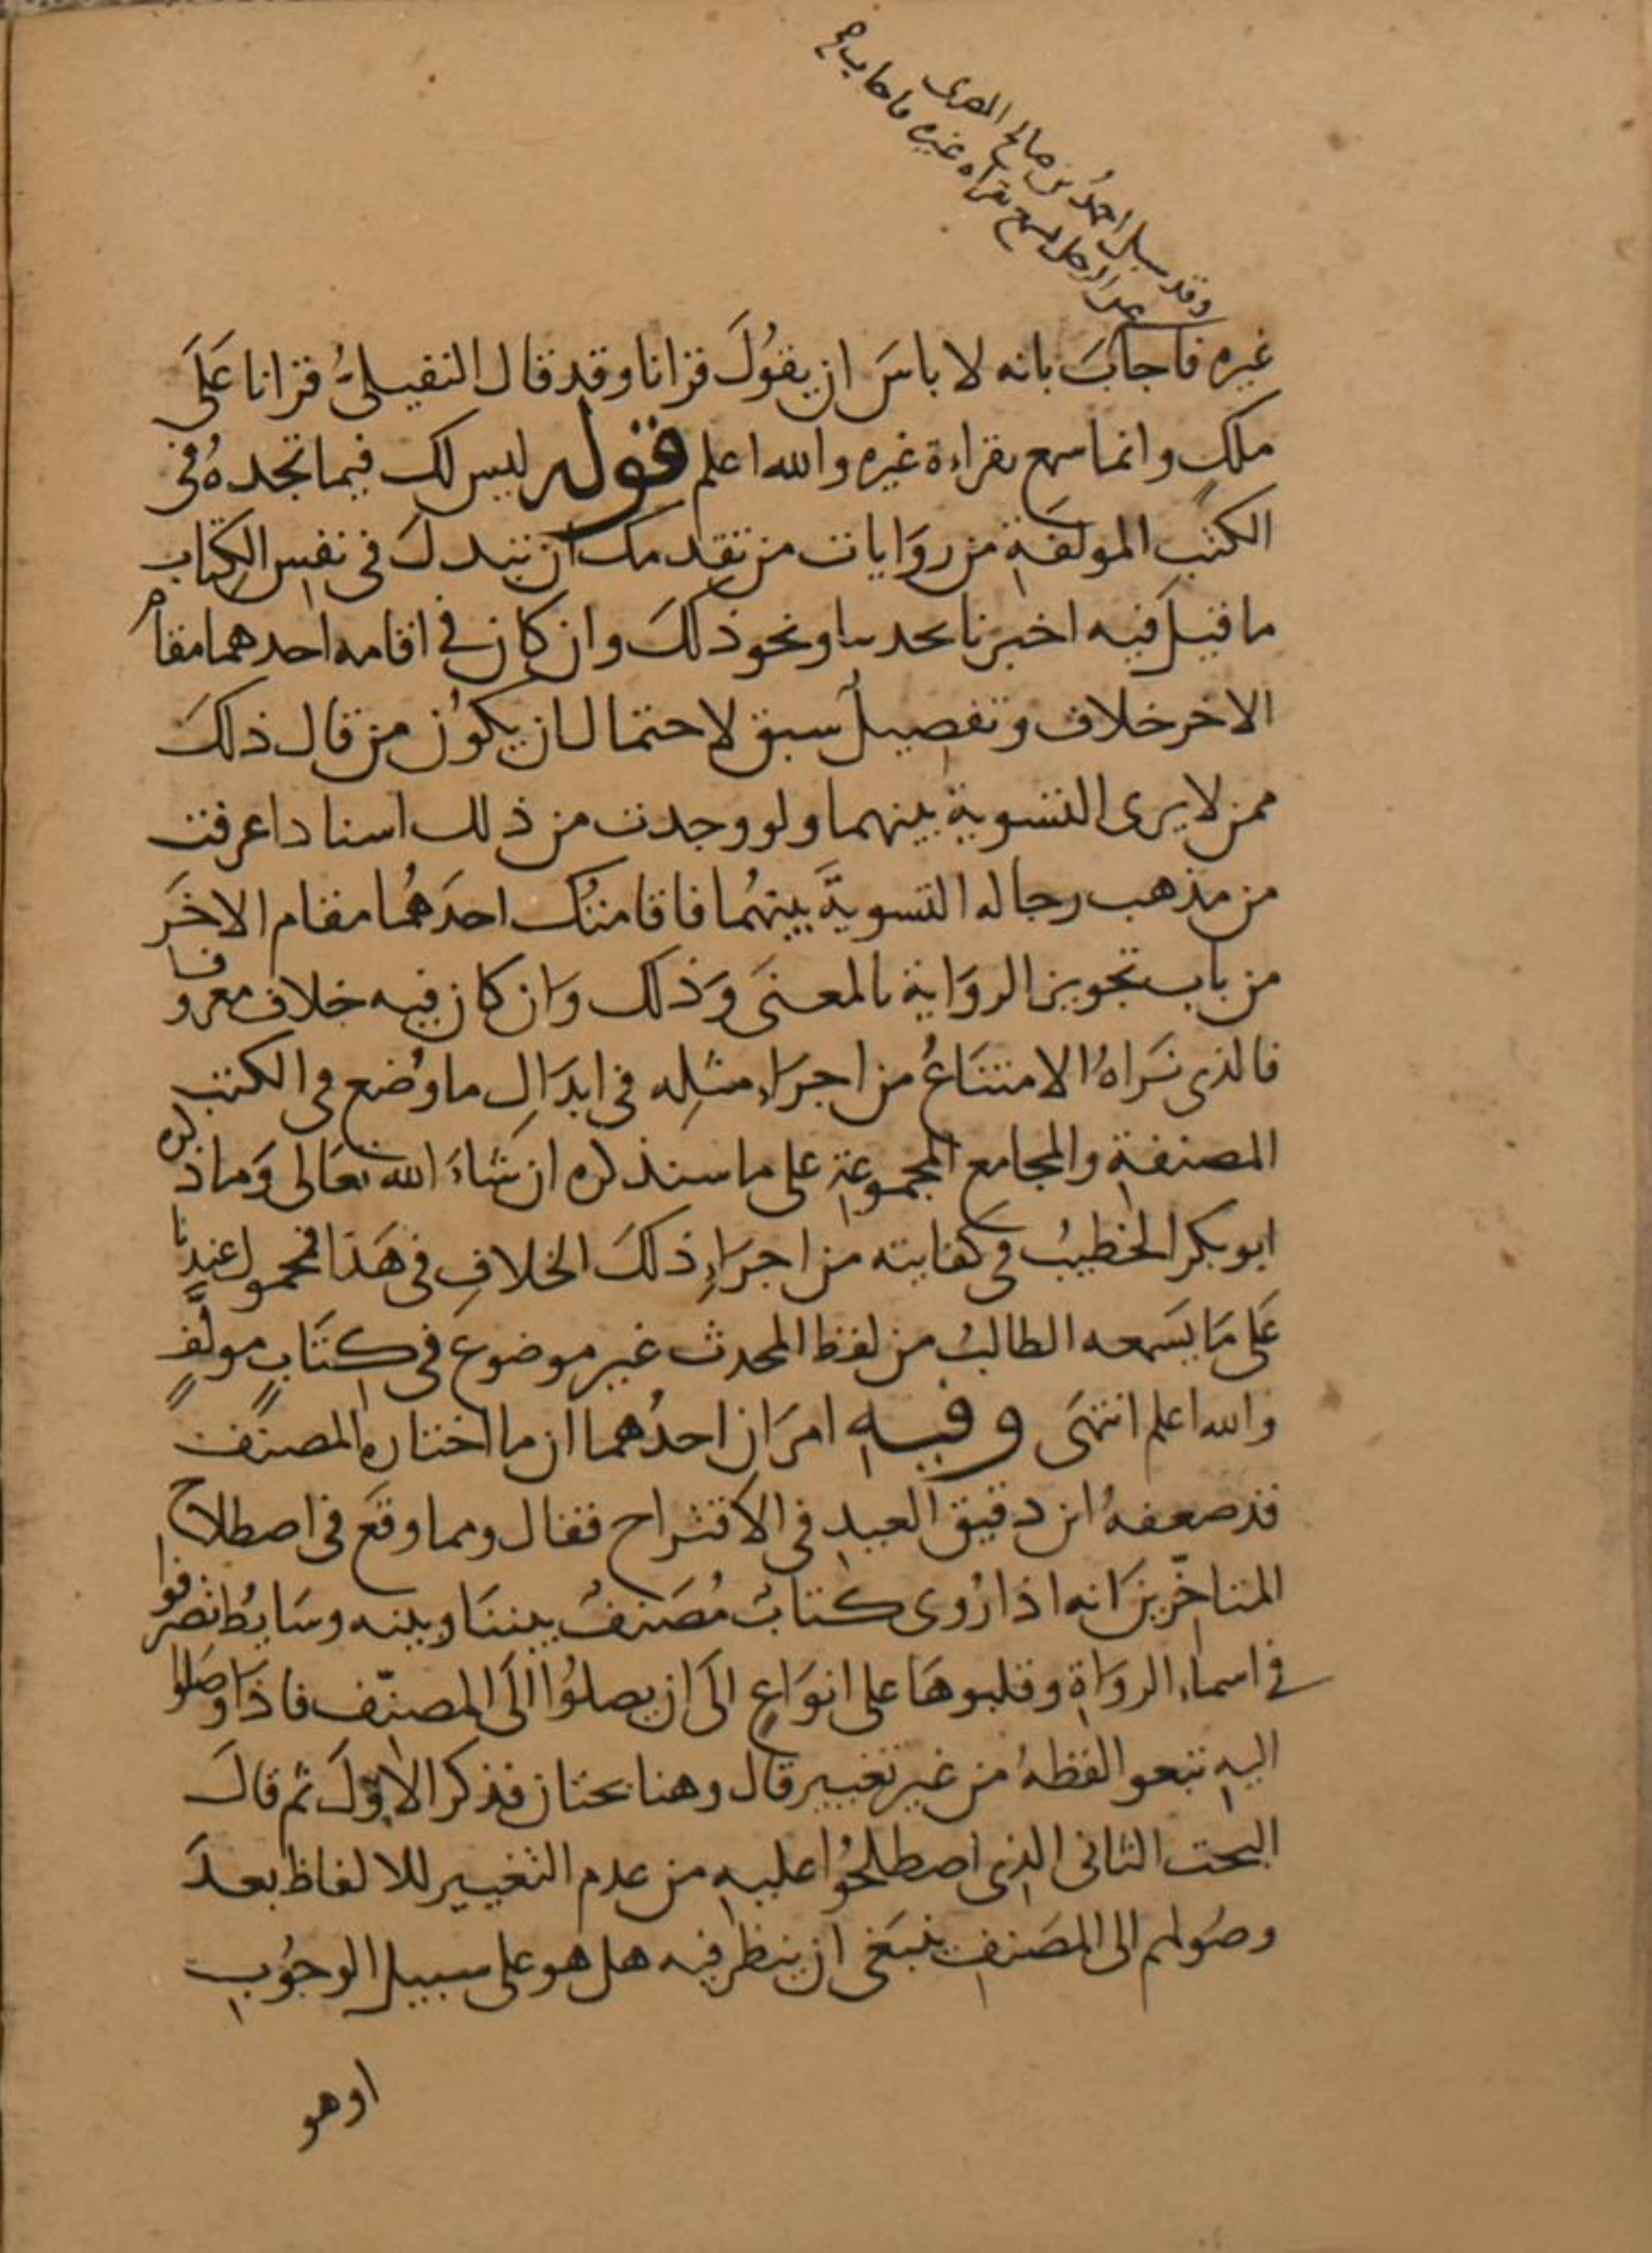 وقد سيل احمدُ بن صالح المصرى
عن الرجل يسمع بقراه غيره فاجاب
غيره فاجابَ بانه لا باسَ ان يقوُلَ قرانا وقد قال النفيلىُّ قرانا عَلَى
ملكٍ وانما سمع بقراءة غيره والله اعلم قوله ليس لك فيما تجدهُ فى
الكتب المولفَةِ من روَايات من تقدمك ان تبدلَ فى نفسِ الكِتاب
ما قيلَ فيه اخبرنا بحدثنا ونحو ذلكَ وان كان فى اقامه احدهما مقام
الاخر خلاف وتفصيل سبق لاحتمال ان يكوُن من قال ذلكَ
ممن لا يرى التسوية بينهما ولو وجدت من ذلك اسنادا عرفت
من مذهب رجاله التسويةَ بينهُما فاقامتُك احدَهُما مقام الاخَر
من باب تجويز الروَاية بالمعنَى وَذلك وَان كان فيه خلاف معروف
فالذى نَراهُ الامتنَاعُ من اجرَاءِ مثلِه فى ابدَالِ ما وُضع فى الكتب
المصنفةِ والمجامع المجموعةِ على ما سنذكره ان شَاءَ الله تعَالى وَما ذكره
ابو بكر الخطيبُ فى كفايته من اجرَاءِ ذلكَ الخلافِ فى هَذا فمحمول عندنا
عَلى مَا يسَمعه الطالبُ من لفظ المحدث غير موضوع فى كتَابٍ مولَّفٍ
والله اعلم انتهَى وفيهِ امرَان احدُهما ان ما اختاره المصنف
قد ضعفهُ ابن دقيق العيدِ فى الاقتراح فقال ومما وقعَ فى اصطلاح
المتاخّرينَ انه اذا رُوى كتابُ مُصَنفٍ بيننَا وبينه وسَايطُ تصرفوا
فى اسماءِ الروَاةِ وقلبوهَا على انوَاعٍ الىَ ان يصلوُا الىَ المصنّف فاذَا وصَلوا
اليهِ تبعوا لفظهُ من غير تغيير قال وهنا بحثان فذكر الاوّلَ ثم قالَ
البحث الثانى الذِى اصطلحُوا عليهِ من عدم التغيير للالفاظ بعدَ
وصُولهم الى المصَنف ينبَغى ان ينظر فيه هل هو على سبيل الوجوُبِ
او هو